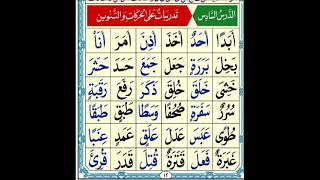 الدَّرْسُ السَّادِسُ تَدْرِيبَاتٌ عَلَى الْحَرَكَاتِ وَالتَّنْوِينِ
أَبَدًا أَحَدٌ أَخَذَ أَذِنَ أَمَرَ أَنَا
بَخِلَ بَرَرَةٍ جَعَلَ جَمَعَ حَسَدَ حَشَرَ
خَشِيَ خَلَقَ خُلِقَ ذَكَرَ رَفَعَ رَقَبَةٍ
سُرُرٌ سَفَرَةٍ صُحُفًا وَسَطًا طَبَقٍ طَبَقًا
طُوًى عَبَسَ عَدَلَ عَلَقٍ عَمَدٍ عِنَبًا
غَبَرَةٌ فَعَلَ قَتَرَةٌ قُتِلَ قَدَرَ قُرِئَ
١٢